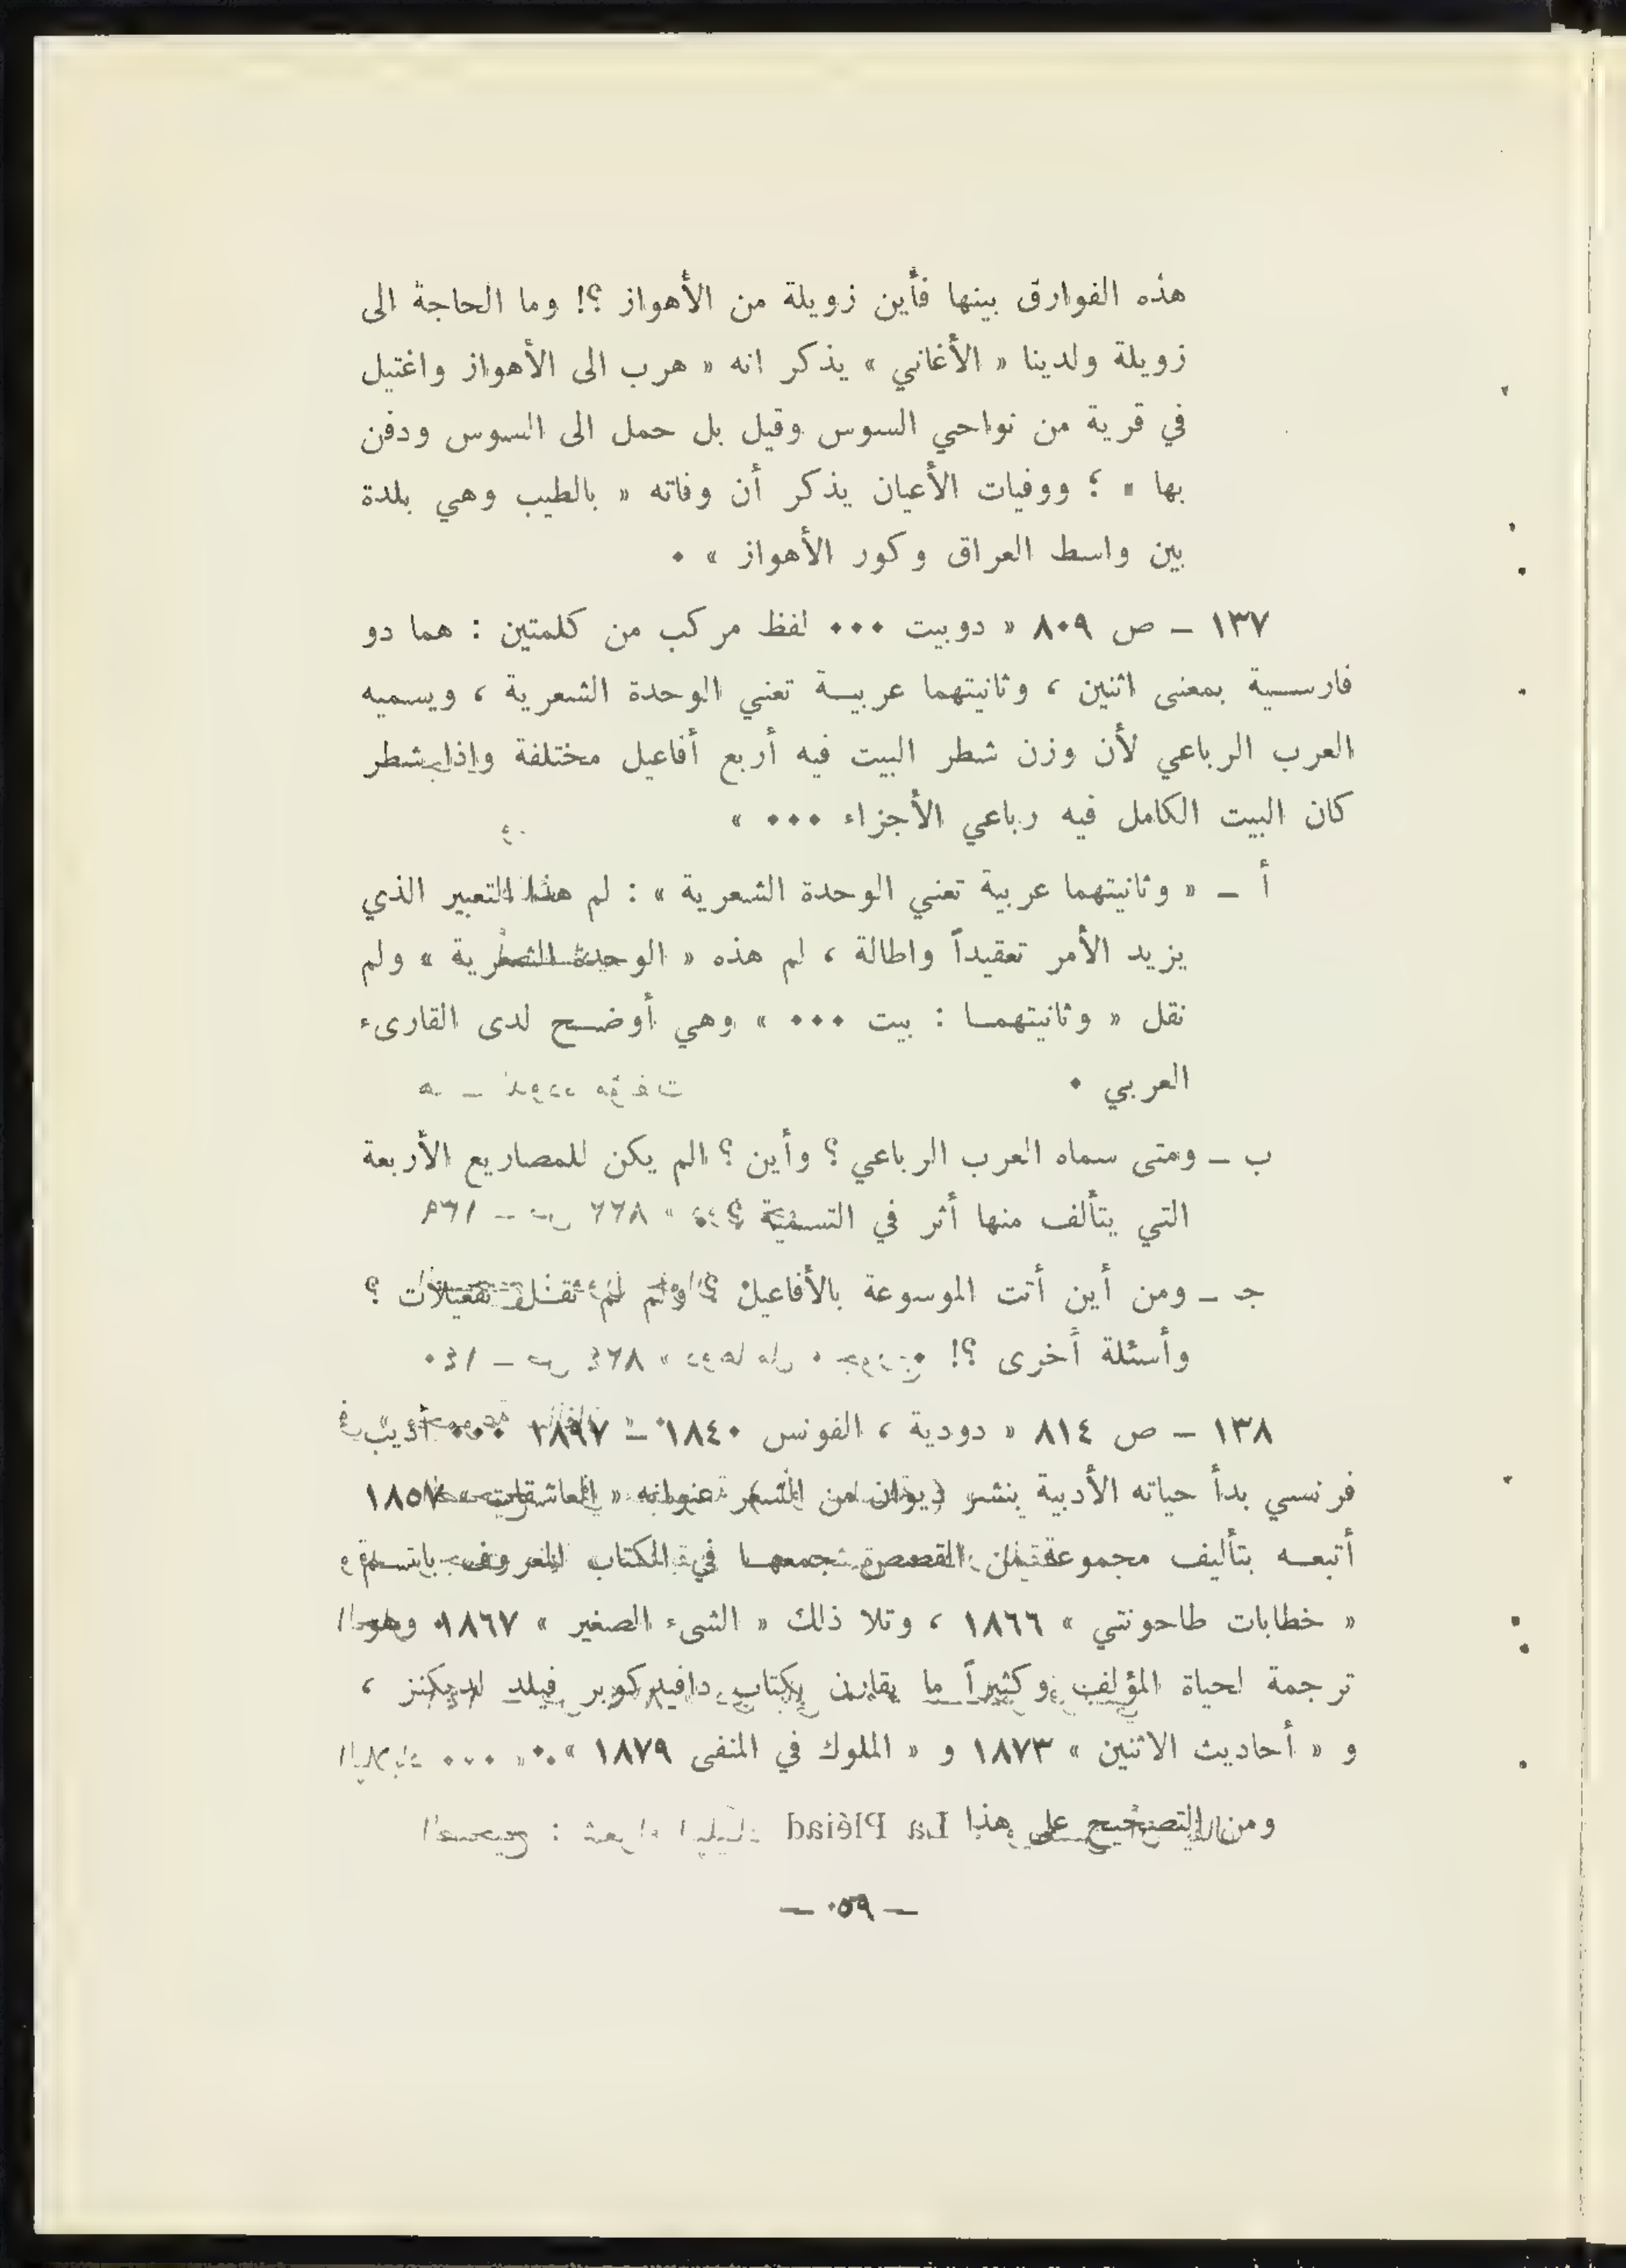 هذه الفوارق بينها فأين زويلة من الأهواز ؟! وما الحاجة الى
زويلة ولدينا « الأغاني » يذكر انه « هرب الى الأهواز واغتيل
في قرية من نواحي السوس وقيل بل حمل الى السوس ودفن
بها » ؛ ووفيات الأعيان يذكر أن وفاته « بالطيب وهي بلدة
بين واسط العراق وكور الأهواز » ٠
١٣٧ ــ ص ٨٠٩ « دوبيت ٠٠٠ لفظ مركب من كلمتين : هما دو
فارسية بمعنى اثنين ، وثانيتهما عربية تعني الوحدة الشعرية ، ويسميه
العرب الرباعي لأن وزن شطر البيت فيه أربع أفاعيل مختلفة وإذا شطر
كان البيت الكامل فيه رباعي الأجزاء ٠٠٠ »
أ ــ « وثانيتهما عربية تعني الوحدة الشعرية » : لم هذا التعبير الذي
يزيد الأمر تعقيداً واطالة ، لم هذه « الوحدة الشعرية » ولم
نقل « وثانيتهما : بيت ٠٠٠ » وهي أوضح لدى القارىء
العربي ٠
ب ــ ومتى سماه العرب الرباعي ؟ وأين ؟ الم يكن للمصاريع الأربعة
التي يتألف منها أثر في التسمية ؟
جـ ــ ومن أين أتت الموسوعة بالأفاعيل ؟ ولم لم تقل تفعيلات ؟
وأسئلة أخرى ؟!
١٣٨ ــ ص ٨١٤ « دودية ، الفونس ١٨٤٠ ــ ١٨٩٧ ٠٠٠ أديب
فرنسي بدأ حياته الأدبية بنشر ديوان من الشعر عنوانه « العاشقات » ١٨٥٧
أتبعه بتأليف مجموعة من القصص جمعها في الكتاب المعروف باسم
« خطابات طاحونتي » ١٨٦٦ ، وتلا ذلك « الشىء الصغير » ١٨٦٧ وهو
ترجمة لحياة المؤلف وكثيراً ما يقارن بكتاب دافيد كوبر فيلد لديكنز ،
و « أحاديث الاثنين » ١٨٧٣ و « الملوك في المنفى ١٨٧٩ » ٠
ومن التصحيح على هذا
ــ ٥٩ ــ